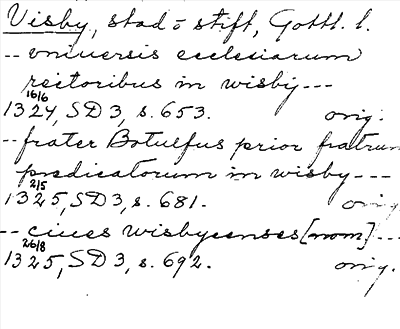 Visby, stad o stift, Gottl. l.
-- vniuersis ecclesiarum
rectoribus in wisby ---
16/6
1324, SD 3, s. 653. orig.
-- frater Botulfus prior fratrum
predicatorum in wisby ---
2/5
1325, SD 3, s. 681. orig.
-- ciues wisbycenses [nom] ---
26/8
1325, SD 3, s. 692. orig.